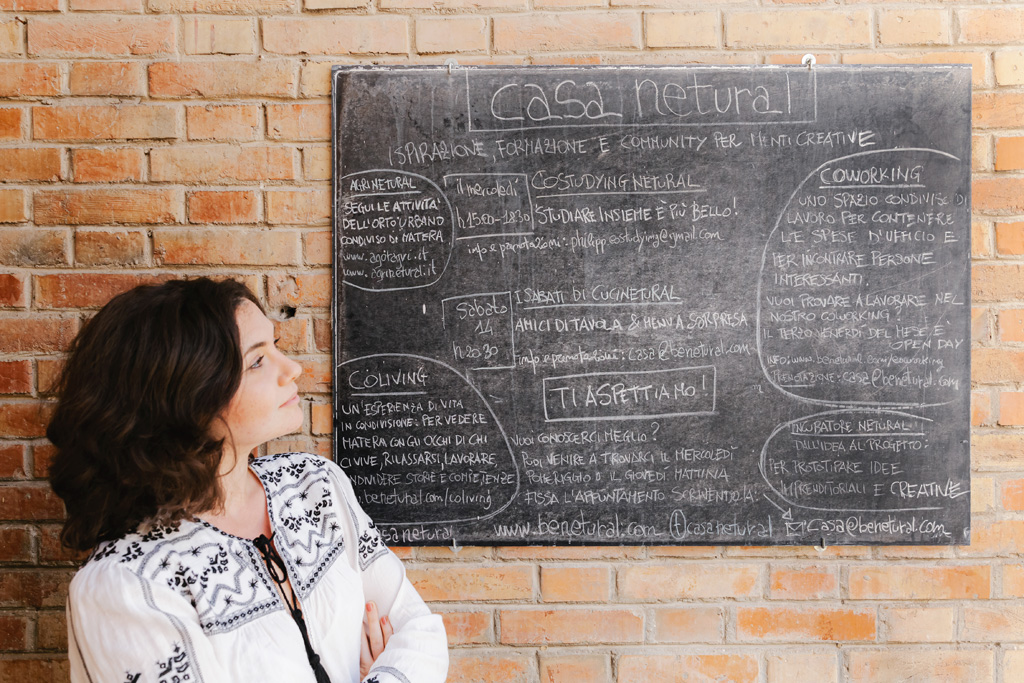 casa netural
ISPIRAZIONE, FORMAZIONE E COMMUNITY PER MENTI CREATIVE
AGRINETURAL
SEGUI LE ATTIVITA'
DELL'ORTO URBANO
CONDIVISO DI MATERA
www.agoragri.it
www.agrinetural.it
il mercoledì
h 15.00-18.30
COSTUDYING NETURAL
STUDIARE INSIEME È PIÙ BELLO!
info e prenotazioni: philipp.costudying@gmail.com
Sabato
14
h 20.30
I SABATI DI CUCINETURAL
AMICI DI TAVOLA & MENU A SORPRESA
info e prenotazioni: casa@benetural.com
TI ASPETTIAMO!
COLIVING
UN'ESPERIENZA DI VITA
IN CONDIVISIONE: PER VEDERE
MATERA CON GLI OCCHI DI CHI
CI VIVE, RILASSARSI, LAVORARE,
CONDIVIDERE STORIE E COMPETENZE
benetural.com/coliving
VUOI CONOSCERCI MEGLIO?
PUOI VENIRE A TROVARCI IL MERCOLEDÌ
POMERIGGIO O IL GIOVEDÌ MATTINA
FISSA L'APPUNTAMENTO SCRIVENDO A:
COWORKING
UNO SPAZIO CONDIVISO DI
LAVORO PER CONTENERE
LE SPESE D'UFFICIO E
PER INCONTRARE PERSONE
INTERESSANTI.
VUOI PROVARE A LAVORARE NEL
NOSTRO COWORKING?
IL TERZO VENERDÌ DEL MESE E'
OPEN DAY
INFO: www.benetural.com/coworking
PRENOTAZIONE: casa@benetural.com
INCUBATORE NETURAL
DALL'IDEA AL PROGETTO:
PER PROTOTIPARE IDEE
IMPRENDITORIALI E CREATIVE
casa netural www.benetural.com casa netural casa@benetural.com